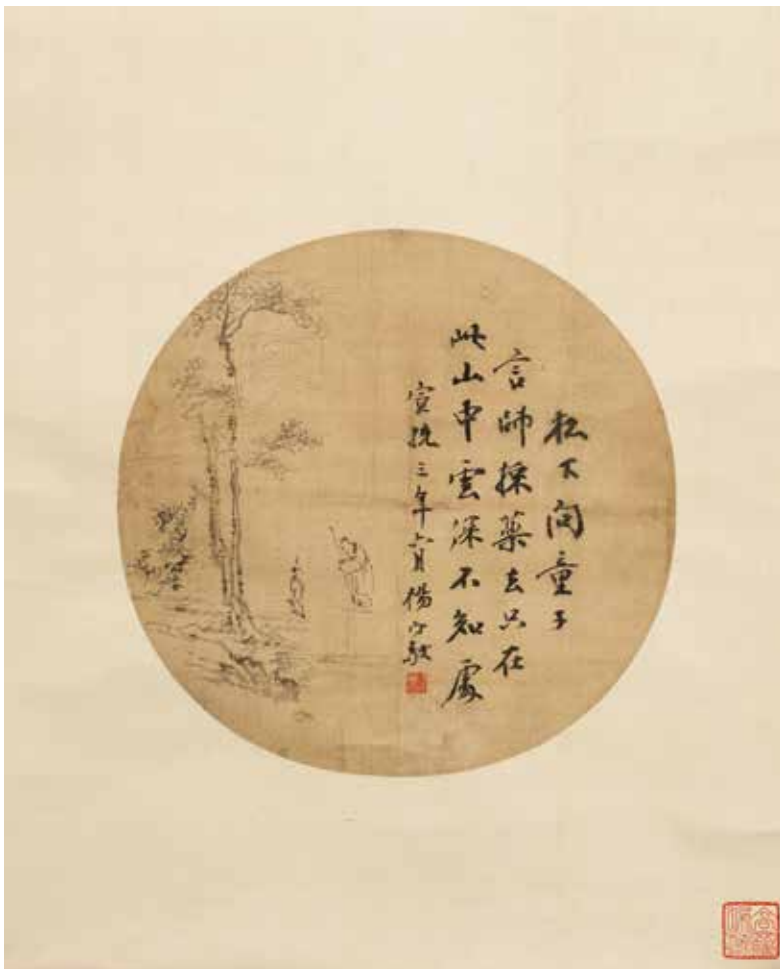 松下问童子
言師採藥去只在
此山中雲深不知處
宣統三年六月楊守敬